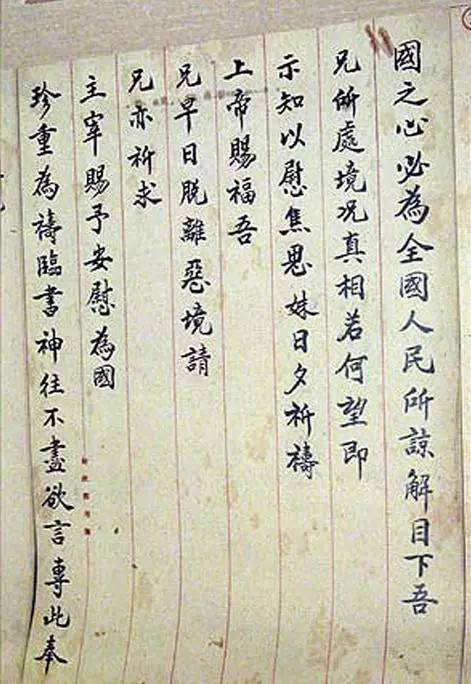 國之心必為全國人民所諒解目下吾
兄所處境況真相若何望即
示知以慰焦思妹日夕祈禱
上帝賜福吾
兄早日脫離惡境請
兄亦祈求
主宰賜予安慰為國
珍重為禱臨書神往不盡欲言專此奉